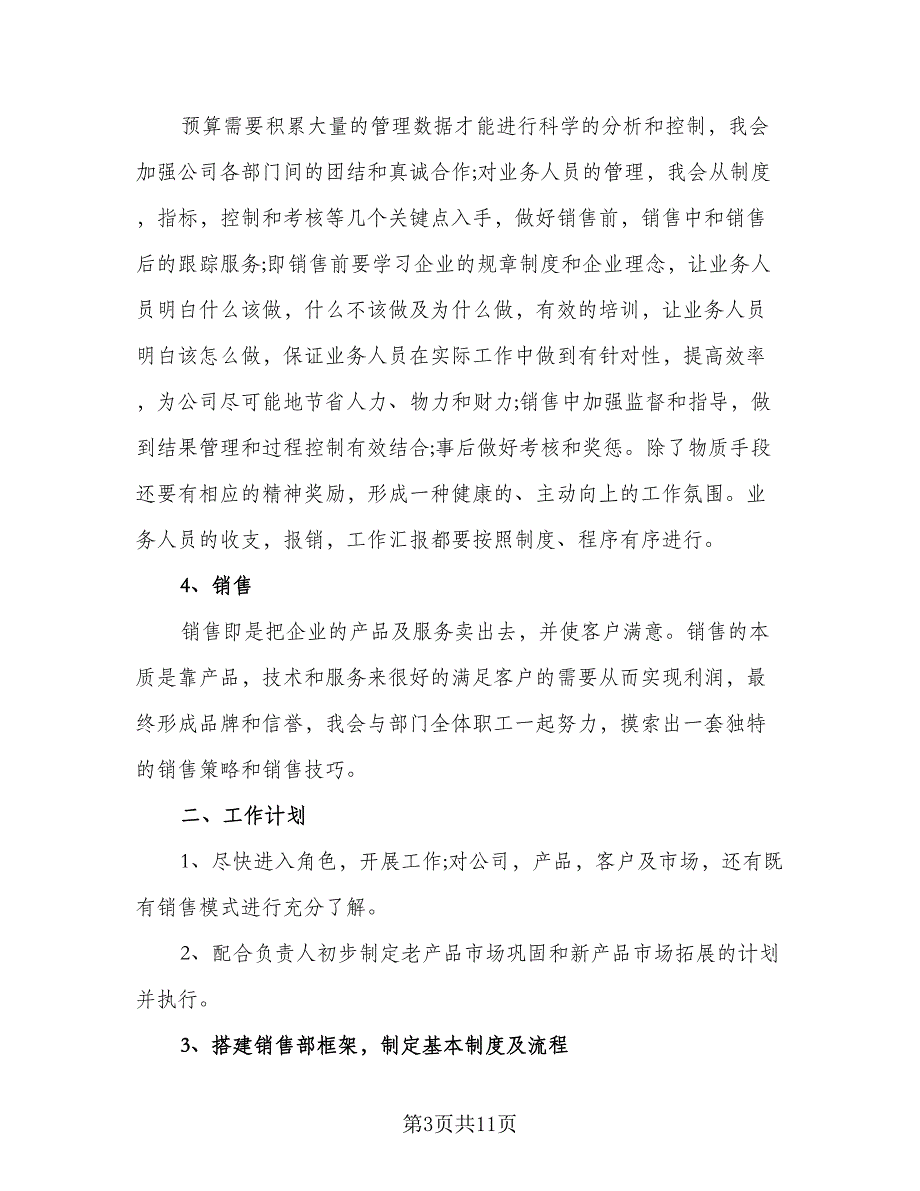 预算需要积累大量的管理数据才能进行科学的分析和控制，我会
加强公司各部门间的团结和真诚合作;对业务人员的管理，我会从制度
，指标，控制和考核等几个关键点入手，做好销售前，销售中和销售
后的跟踪服务;即销售前要学习企业的规章制度和企业理念，让业务人
员明白什么该做，什么不该做及为什么做，有效的培训，让业务人员
明白该怎么做，保证业务人员在实际工作中做到有针对性，提高效率
，为公司尽可能地节省人力、物力和财力;销售中加强监督和指导，做
到结果管理和过程控制有效结合;事后做好考核和奖惩。除了物质手段
还要有相应的精神奖励，形成一种健康的、主动向上的工作氛围。业
务人员的收支，报销，工作汇报都要按照制度、程序有序进行。
4、销售
销售即是把企业的产品及服务卖出去，并使客户满意。销售的本
质是靠产品，技术和服务来很好的满足客户的需要从而实现利润，最
终形成品牌和信誉，我会与部门全体职工一起努力，摸索出一套独特
的销售策略和销售技巧。
二、工作计划
1、尽快进入角色，开展工作;对公司，产品，客户及市场，还有既
有销售模式进行充分了解。
2、配合负责人初步制定老产品市场巩固和新产品市场拓展的计划
并执行。
3、搭建销售部框架，制定基本制度及流程
第3页共11页